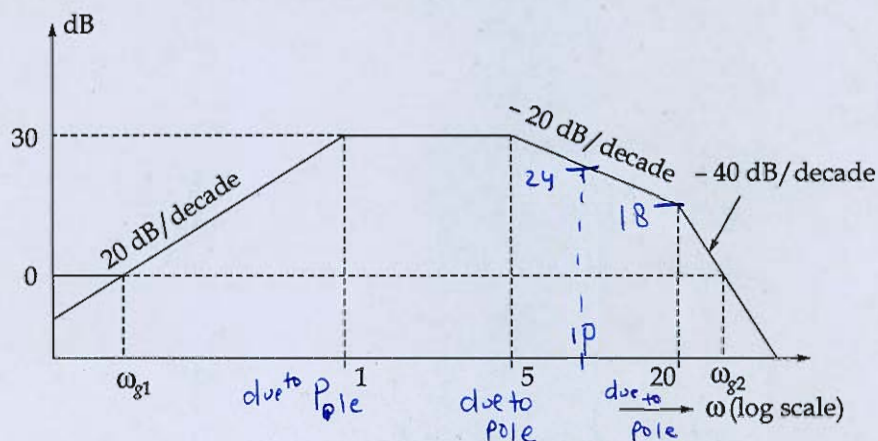 dB
30
20 dB/decade
– 20 dB/decade
– 40 dB/decade
24
18
0
10
ωg1
1
5
20
ωg2
ω (log scale)
due to Pole
due to pole
due to pole